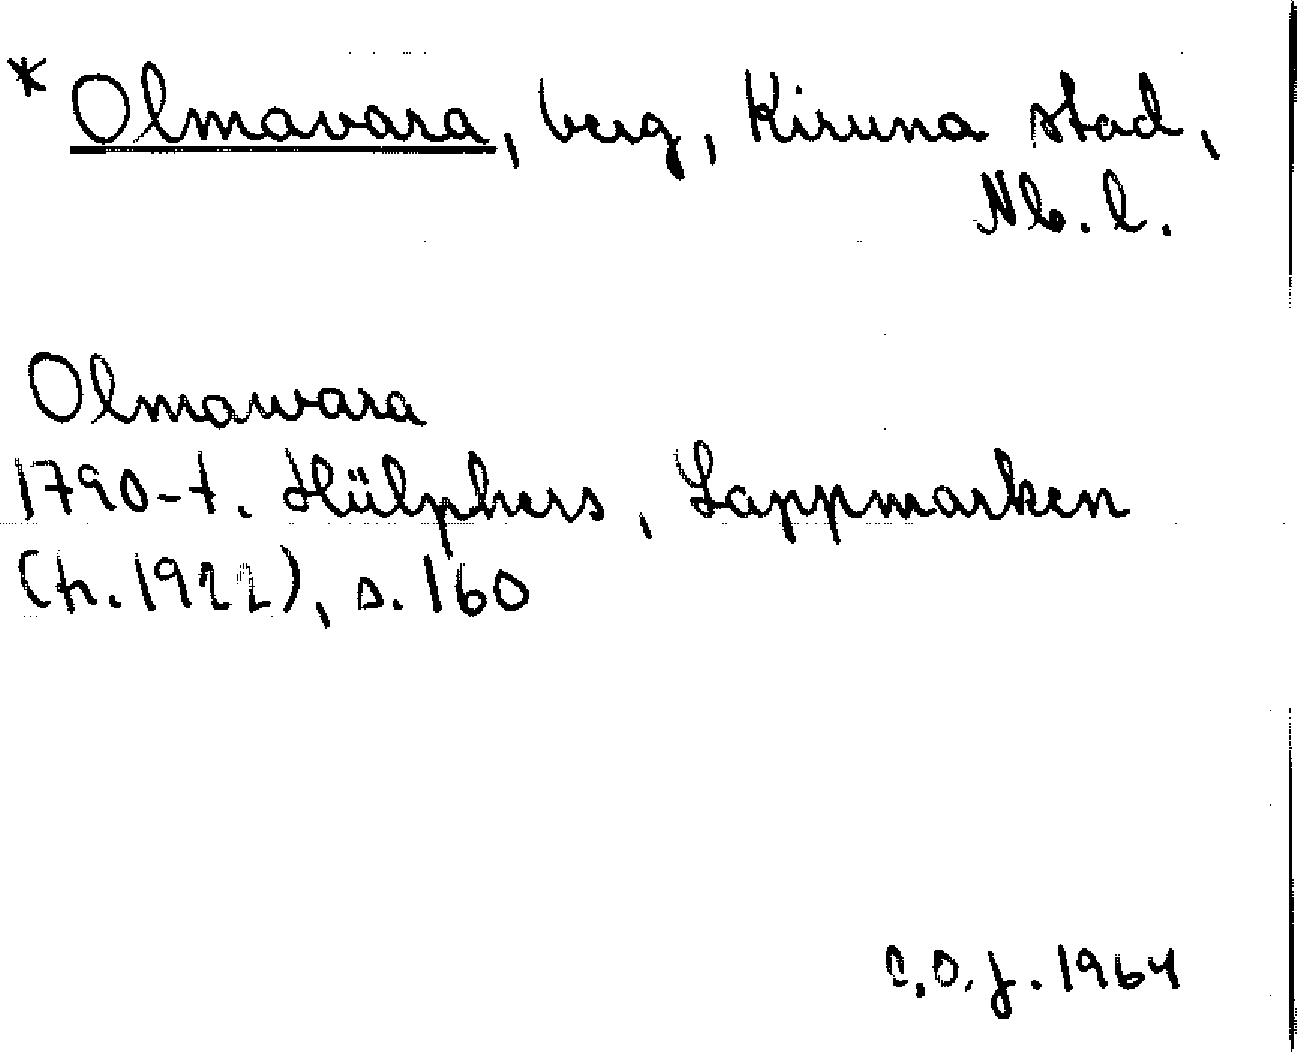 * Olmavara, berg, Kiruna stad,
Nb. l.
Olmawara
1790-t. Hülphers, Lappmarken
(tr. 1922), s. 160
C.O.J. 1964